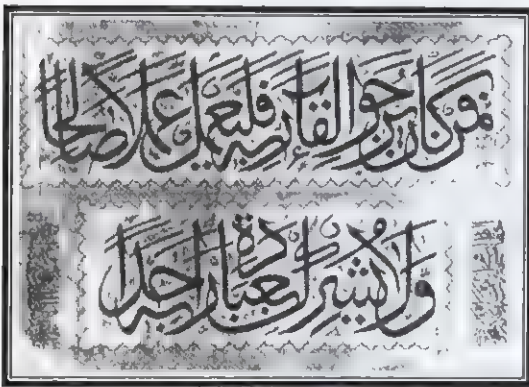 فمن كان يرجو لقاء ربه فليعمل عملا صالحا
ولا يشرك بعبادة ربه أحدا